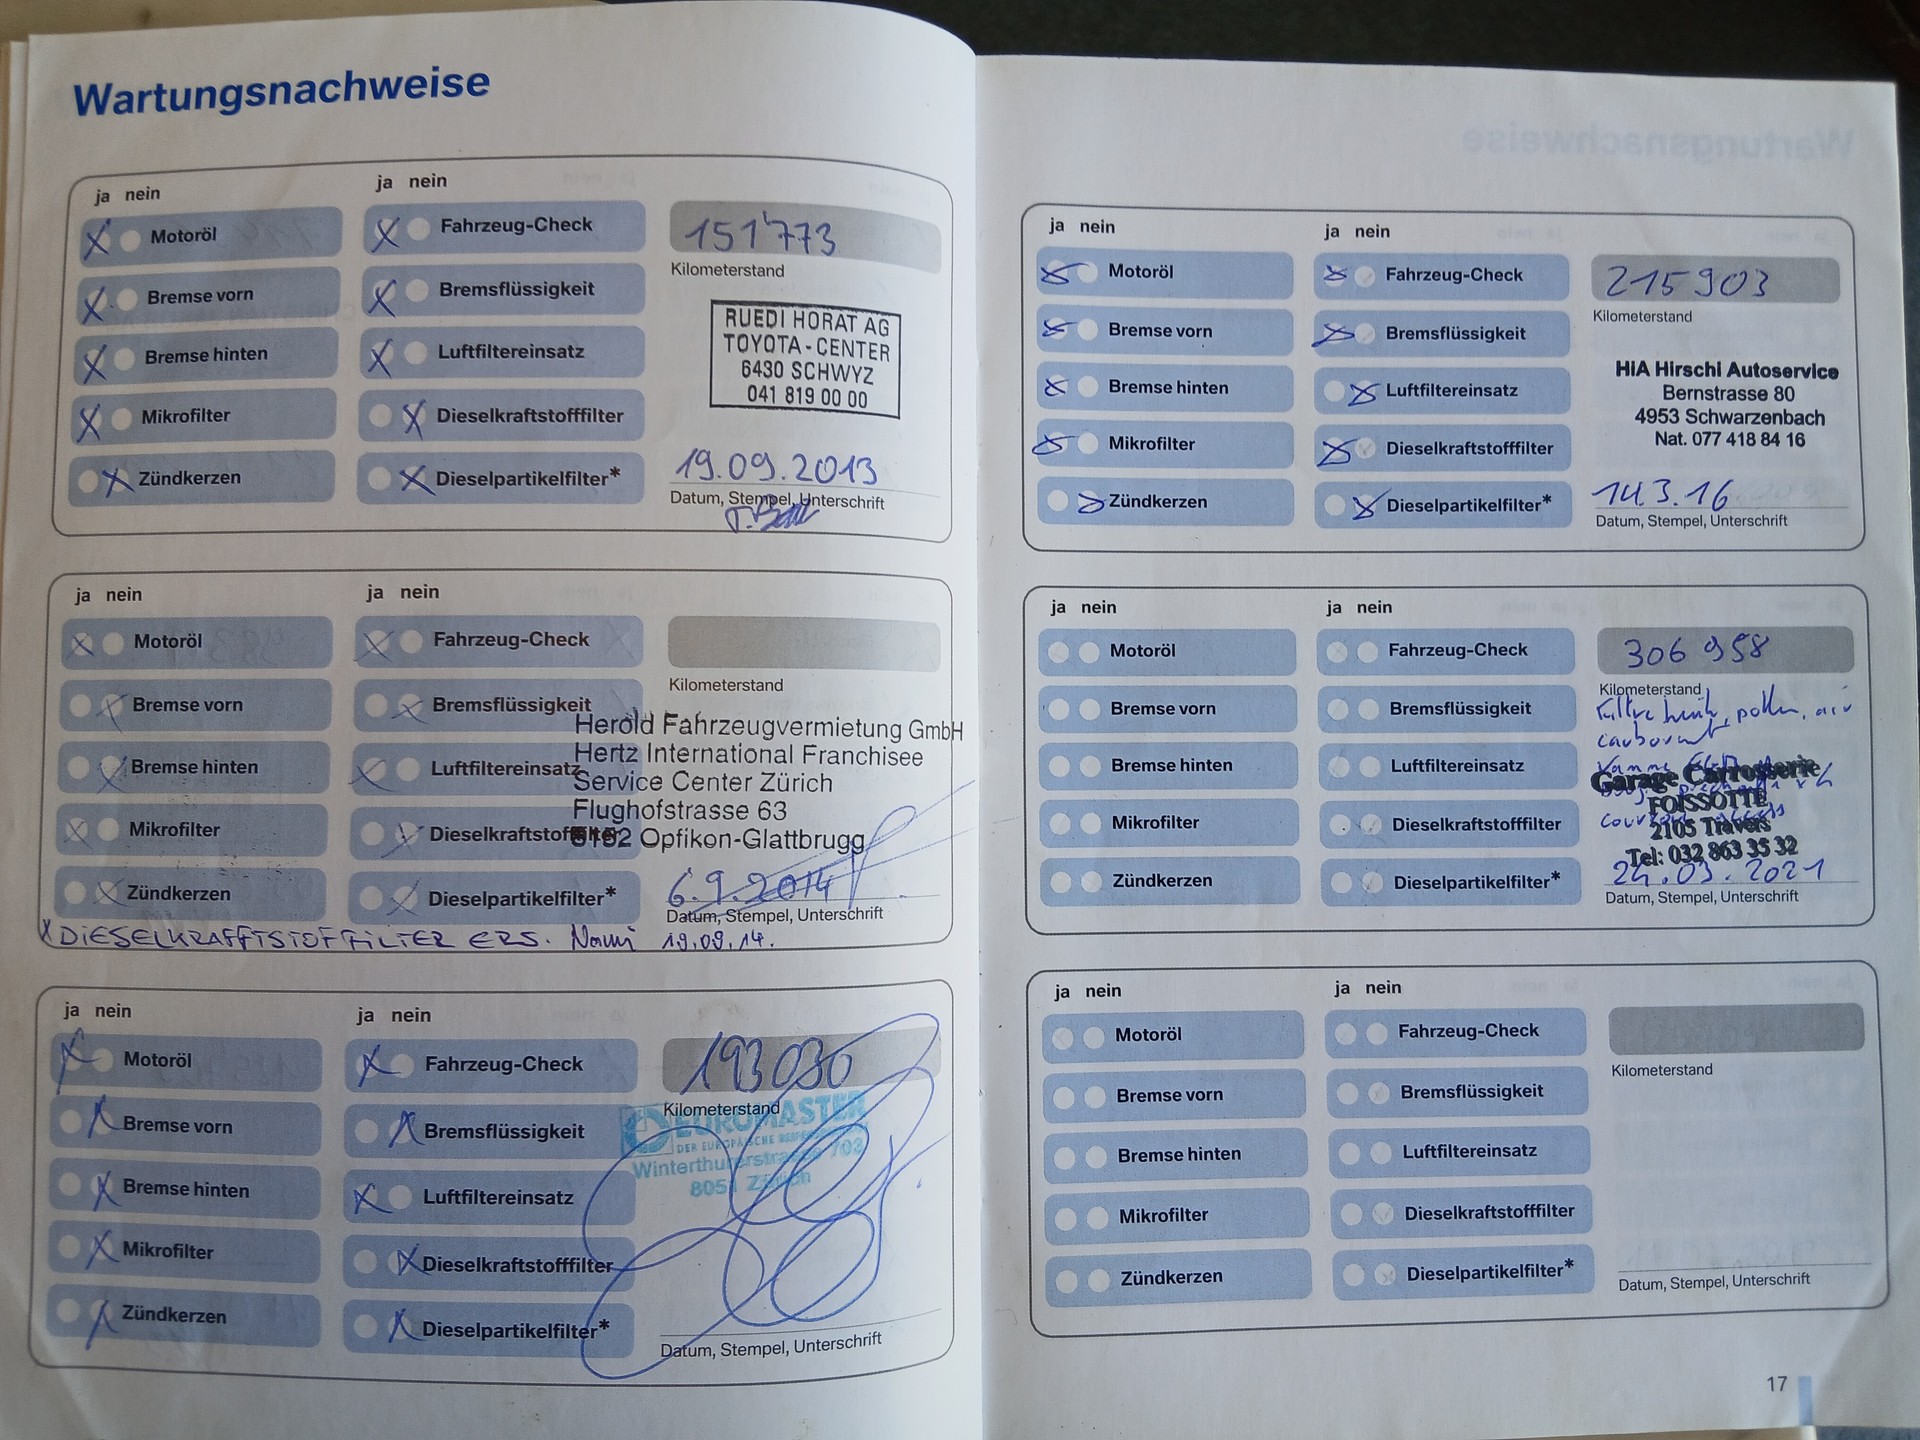 Wartungsnachweise
ja nein
ja nein
Motoröl
Fahrzeug-Check
151'773
Kilometerstand
Bremse vorn
Bremsflüssigkeit
Bremse hinten
Luftfiltereinsatz
RUEDI HORAT AG
TOYOTA-CENTER
6430 SCHWYZ
041 819 00 00
Mikrofilter
Dieselkraftstofffilter
Zündkerzen
Dieselpartikelfilter*
19.09.2013
Datum, Stempel, Unterschrift
ja nein
ja nein
Motoröl
Fahrzeug-Check
Kilometerstand
Bremse vorn
Bremsflüssigkeit
Bremse hinten
Luftfiltereinsatz
Herold Fahrzeugvermietung GmbH
Hertz International Franchisee
Service Center Zürich
Flughofstrasse 63
8152 Opfikon-Glattbrugg
Mikrofilter
Dieselkraftstofffilter
Zündkerzen
Dieselpartikelfilter*
6.9.2014
Datum, Stempel, Unterschrift
X DIESELKRAFFTSTOFFILTER ERS. 19.09.14.
ja nein
ja nein
Motoröl
Fahrzeug-Check
193030
Kilometerstand
Bremse vorn
Bremsflüssigkeit
EUROMASTER
DER EUROPÄISCHE
Winterthurerstrasse 703
8051 Zürich
Bremse hinten
Luftfiltereinsatz
Mikrofilter
Dieselkraftstofffilter
Zündkerzen
Dieselpartikelfilter*
Datum, Stempel, Unterschrift
ja nein
ja nein
Motoröl
Fahrzeug-Check
215903
Kilometerstand
Bremse vorn
Bremsflüssigkeit
Bremse hinten
Luftfiltereinsatz
HIA Hirschi Autoservice
Bernstrasse 80
4953 Schwarzenbach
Nat. 077 418 84 16
Mikrofilter
Dieselkraftstofffilter
Zündkerzen
Dieselpartikelfilter*
14.3.16
Datum, Stempel, Unterschrift
ja nein
ja nein
Motoröl
Fahrzeug-Check
306 958
Kilometerstand
Filtre huile, pollen, air
carburant
Vanne
Bremse vorn
Bremsflüssigkeit
Bremse hinten
Luftfiltereinsatz
Garage Carrosserie
FOISSOTTE
2105 Travers
Tel: 032 863 35 32
Mikrofilter
Dieselkraftstofffilter
Zündkerzen
Dieselpartikelfilter*
24.03.2021
Datum, Stempel, Unterschrift
ja nein
ja nein
Motoröl
Fahrzeug-Check
Kilometerstand
Bremse vorn
Bremsflüssigkeit
Bremse hinten
Luftfiltereinsatz
Mikrofilter
Dieselkraftstofffilter
Zündkerzen
Dieselpartikelfilter*
Datum, Stempel, Unterschrift
17